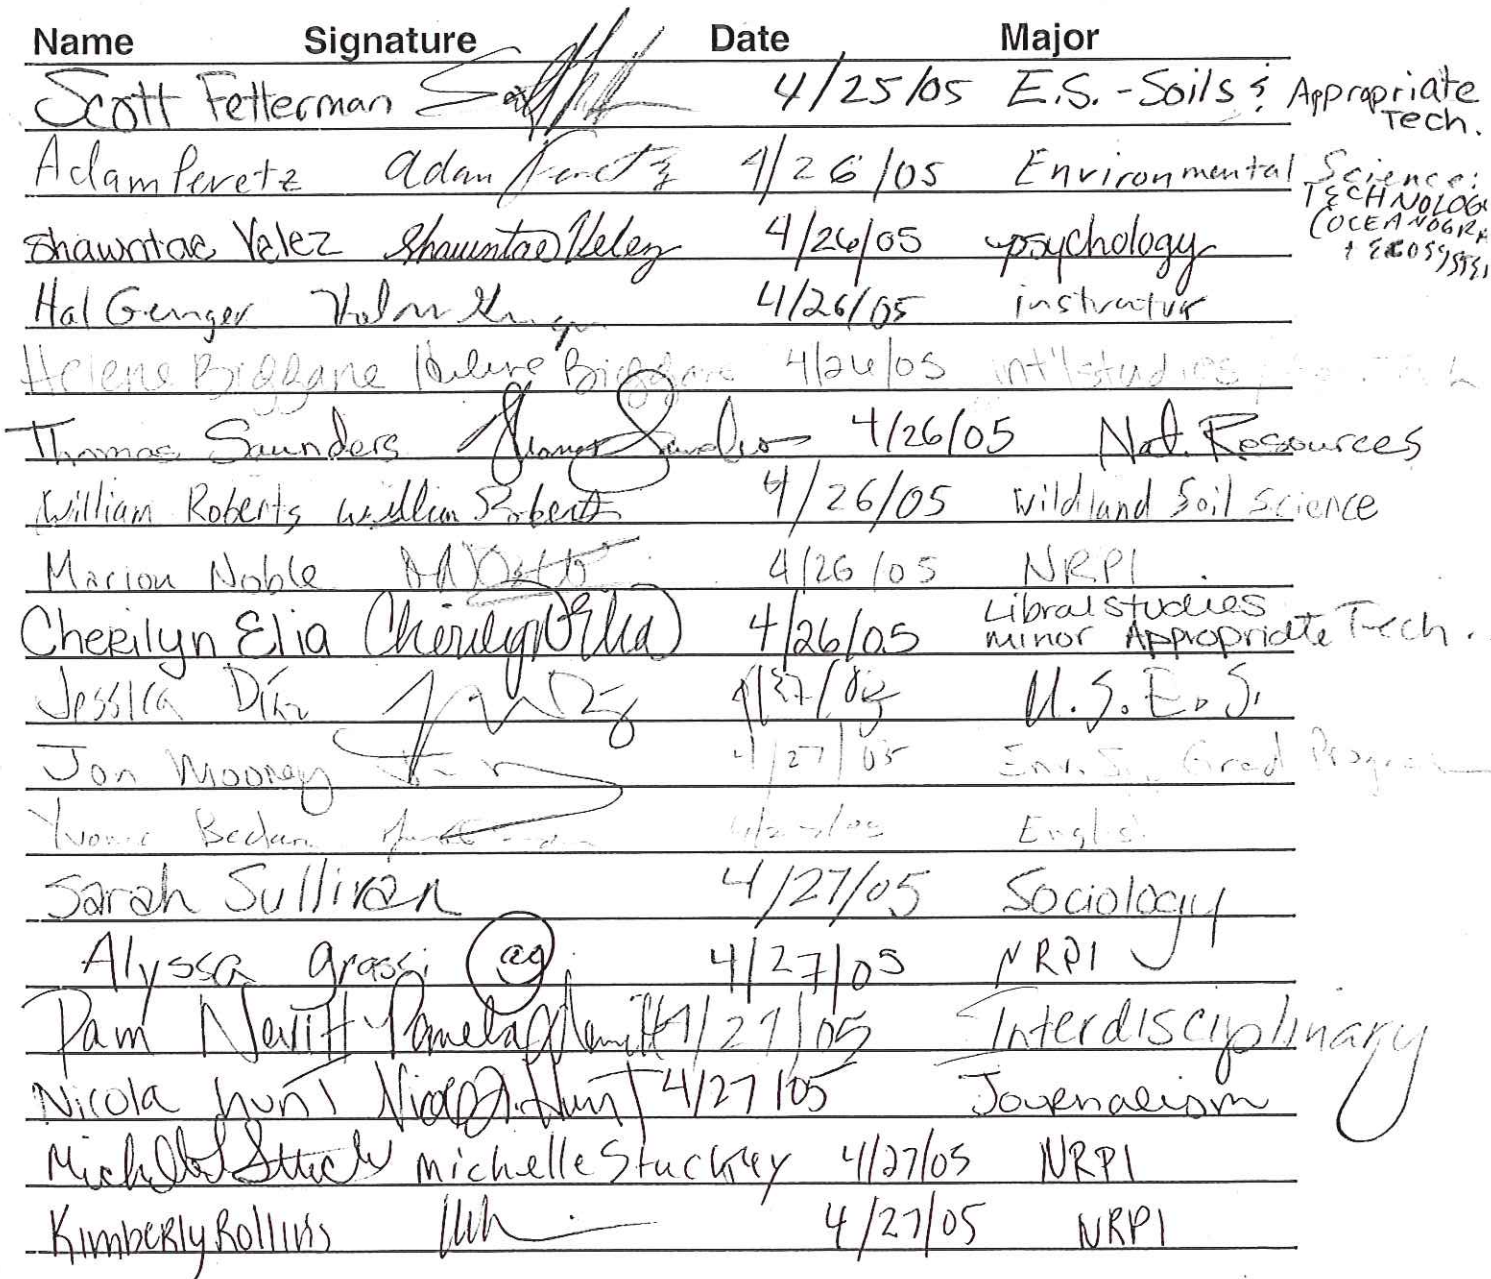 Name Signature Date Major
Scott Fetterman 4/25/05 E.S. - Soils & Appropriate Tech.
Adam Peretz Adam Peretz 4/26/05 Environmental Science:
TECHNOLOGY
(OCEANOGRA
+ ECOSYSTEM
Shawntae Velez Shawntae Velez 4/26/05 psychology
Hal Genger 4/26/05 instructor
Helene Biggane Helene Biggane 4/26/05 int'l studies
Thomas Saunders Thomas Saunders 4/26/05 Nat. Resources
William Roberts William Roberts 4/26/05 Wildland Soil Science
Marion Noble 4/26/05 NRPI
Cherilyn Elia Cherilyn Elia 4/26/05 Libral studies
minor Appropriate Tech.
Jessica Díaz 4/27/05 U.S.E.S.
Jon Mooney 4/27/05 Env. Grad Program
Yvonne 05 English
Sarah Sullivan 4/27/05 Sociology
Alyssa Grassi ag 4/27/05 NRPI
Pam Neritt Pamela 4/27/05 Interdisciplinary
Nicola Hunt Nicola Hunt 4/27/05 Journalism
Michelle Stuckey 4/27/05 NRPI
Kimberly Rollins 4/27/05 NRPI